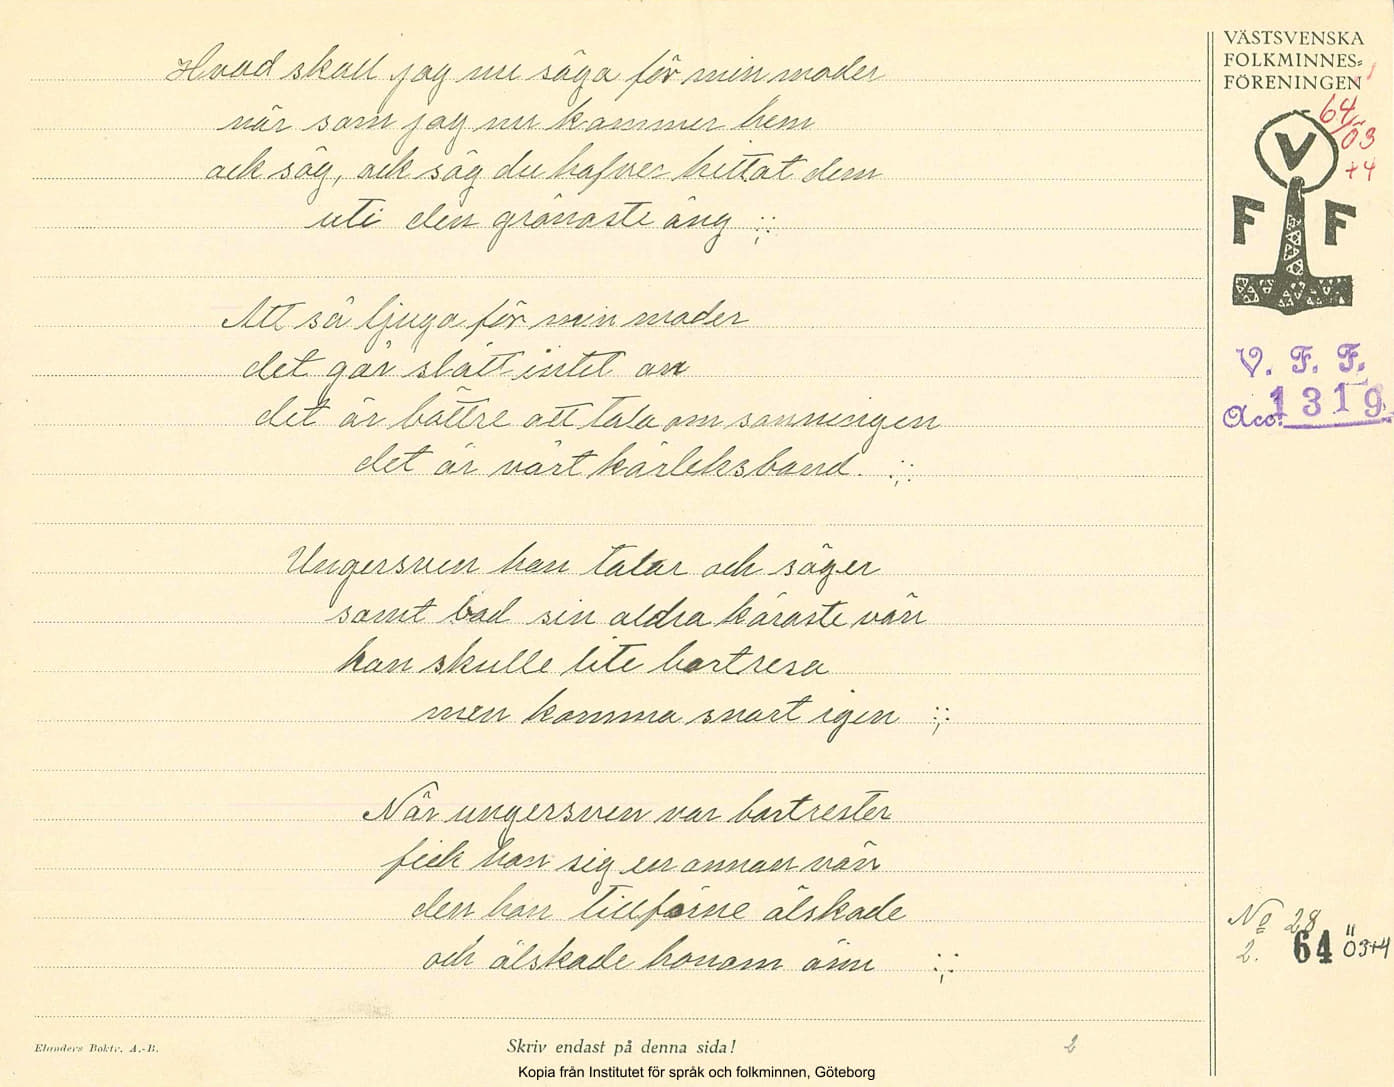 Hvad skall jag nu säga för min moder
när som jag nu kommer hem
ack säg, ack säg du hafver hittat dem
uti den grönaste äng :;:
Att så ljuga för min moder
det går slätt intet an
det är bättre att tala om sanningen
det är vårt kärleksband. :;:
Ungersven han talar och säger
samt bad sin aldra käraste vän
han skulle lite bortresa
men komma snart igen :;:
När ungersven var bortrester
fick han sig en annan vän
den han tillförne älskade
och älskade honom änn :;:
VÄSTSVENSKA
FOLKMINNES=
FÖRENINGEN
64
Ö3
+4
V
F F
V. F. F.
Acc. 1319
No 28
2. 64 Ö3+4
Elanders Boktr. A.-B.
Skriv endast på denna sida!
2
Kopia från Institutet för språk och folkminnen, Göteborg